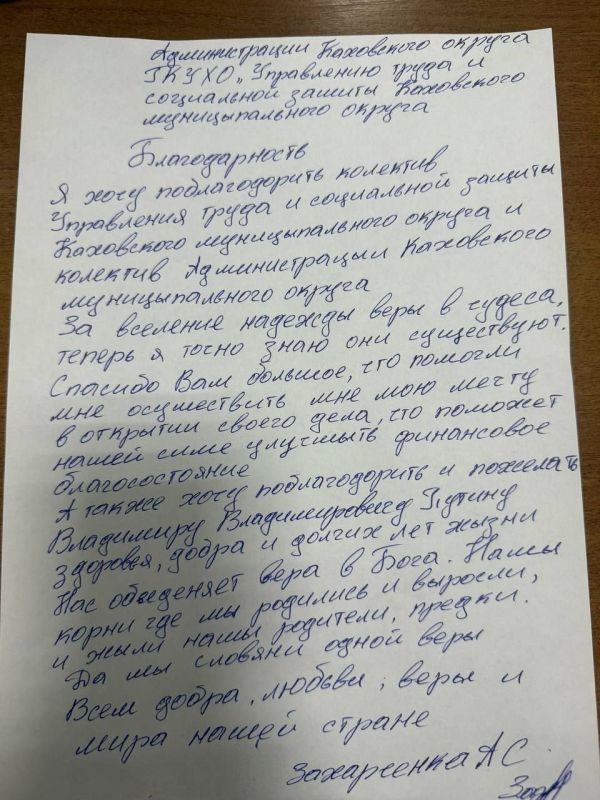 Администрации Каховского округа
ГКУХО „Управлению труда и
социальной защиты Каховского
муницыпального округа
Благодарность
Я хочу поблагодорить колектив
Управления труда и социальной защиты
Каховского муницыпального округа и
колектив Администрацыи Каховского
муницыпального округа
За вселение надежды веры в чудеса,
теперь я точно знаю они существуют.
Спасибо Вам большое, что помогли
мне осуществить мне мою мечту
в открытии своего дела, что поможет
нашей симе улучшыть финансовое
благосостояние
А также хочу поблагодорить и пожелать
Владимиру Владимировичу Путину
здоровья, добра и долгих лет жызни
Нас обьеденяет вера в Бога. Нашы
корни где мы родились и выросли,
и жыли нашы родители, предки.
Да мы словяни одной веры
Всем добра, любьви, веры и
мира нашей стране
Захарченка А С.